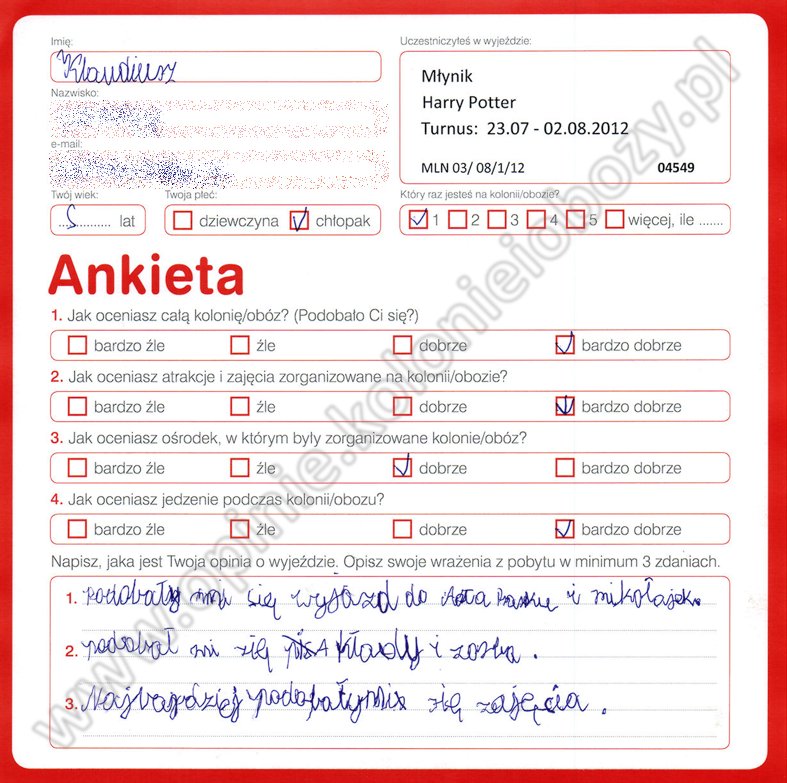 Imię:
Klaudiusz
Uczestniczyłeś w wyjeździe:
Młynik
Harry Potter
Turnus: 23.07 - 02.08.2012
MLN 03/ 08/1/12 04549
Nazwisko:
e-mail:
Twój wiek:
lat
Twoja płeć:
dziewczyna chłopak
Który raz jesteś na kolonii/obozie?
1 2 3 4 5 więcej, ile .......
Ankieta
1. Jak oceniasz całą kolonię/obóz? (Podobało Ci się?)
bardzo źle źle dobrze bardzo dobrze
2. Jak oceniasz atrakcje i zajęcia zorganizowane na kolonii/obozie?
bardzo źle źle dobrze bardzo dobrze
3. Jak oceniasz ośrodek, w którym były zorganizowane kolonie/obóz?
bardzo źle źle dobrze bardzo dobrze
4. Jak oceniasz jedzenie podczas kolonii/obozu?
bardzo źle źle dobrze bardzo dobrze
Napisz, jaka jest Twoja opinia o wyjeździe. Opisz swoje wrażenia z pobytu w minimum 3 zdaniach.
1. podobały mi się wyjazd do i mikołajek.
2. podobał mi się i
3. Najbardziej podobały mi się zajęcia.
www.opinie.kolonieiobozy.pl